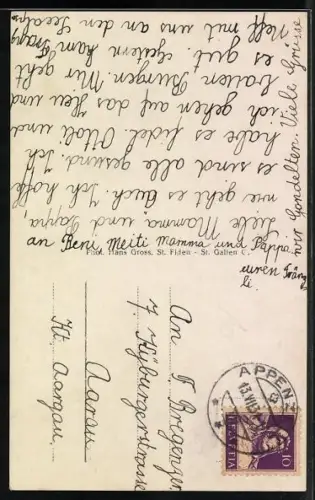 Liebe Mamma und Pappa,
wie geht es Euch. Ich hoffe
es sind alle gesund. Ich
habe es fidel. Otoli und
ich gehen auf das Heu und
Ballen Burgen. Mir geht
es gut. Gestern kam Franz
Neff mit uns an den Seealps
wir Gondelten. Viele Grüsse
an Beni, Meiti Mamma und Pappa
euren Fränz
li.
Phot. Hans Gross, St. Fiden - St. Gallen C.
An F. Bregenzer
7 Kyburgerstrasse
Aarau
Kt. Aargau.
APPEN
13.VII.3
10
HELVETIA